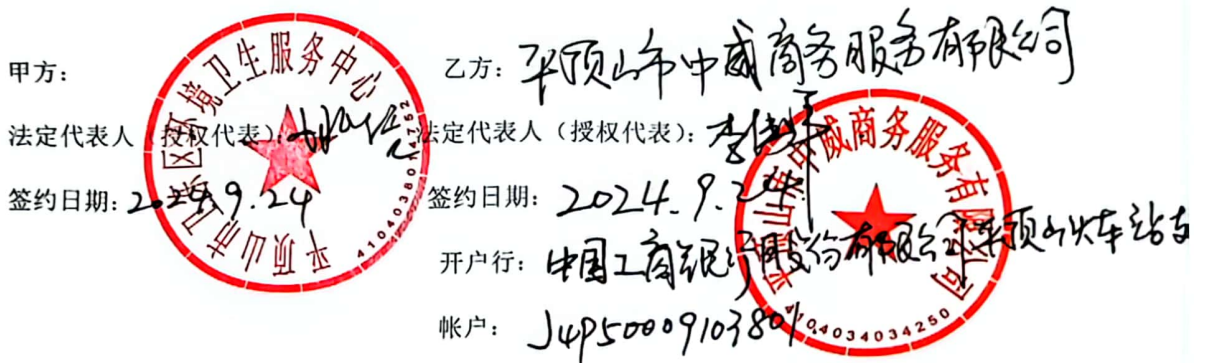 甲方：
法定代表人（授权代表）：
签约日期：2024.9.24
平顶山市卫东区环境卫生服务中心
4104038014252
乙方：平顶山市中威商务服务有限公司
法定代表人（授权代表）：
签约日期：2024.9.24
开户行：中国工商银行股份有限公司平顶山火车站支
帐户：
平顶山市中威商务服务有限公司
4104034034250